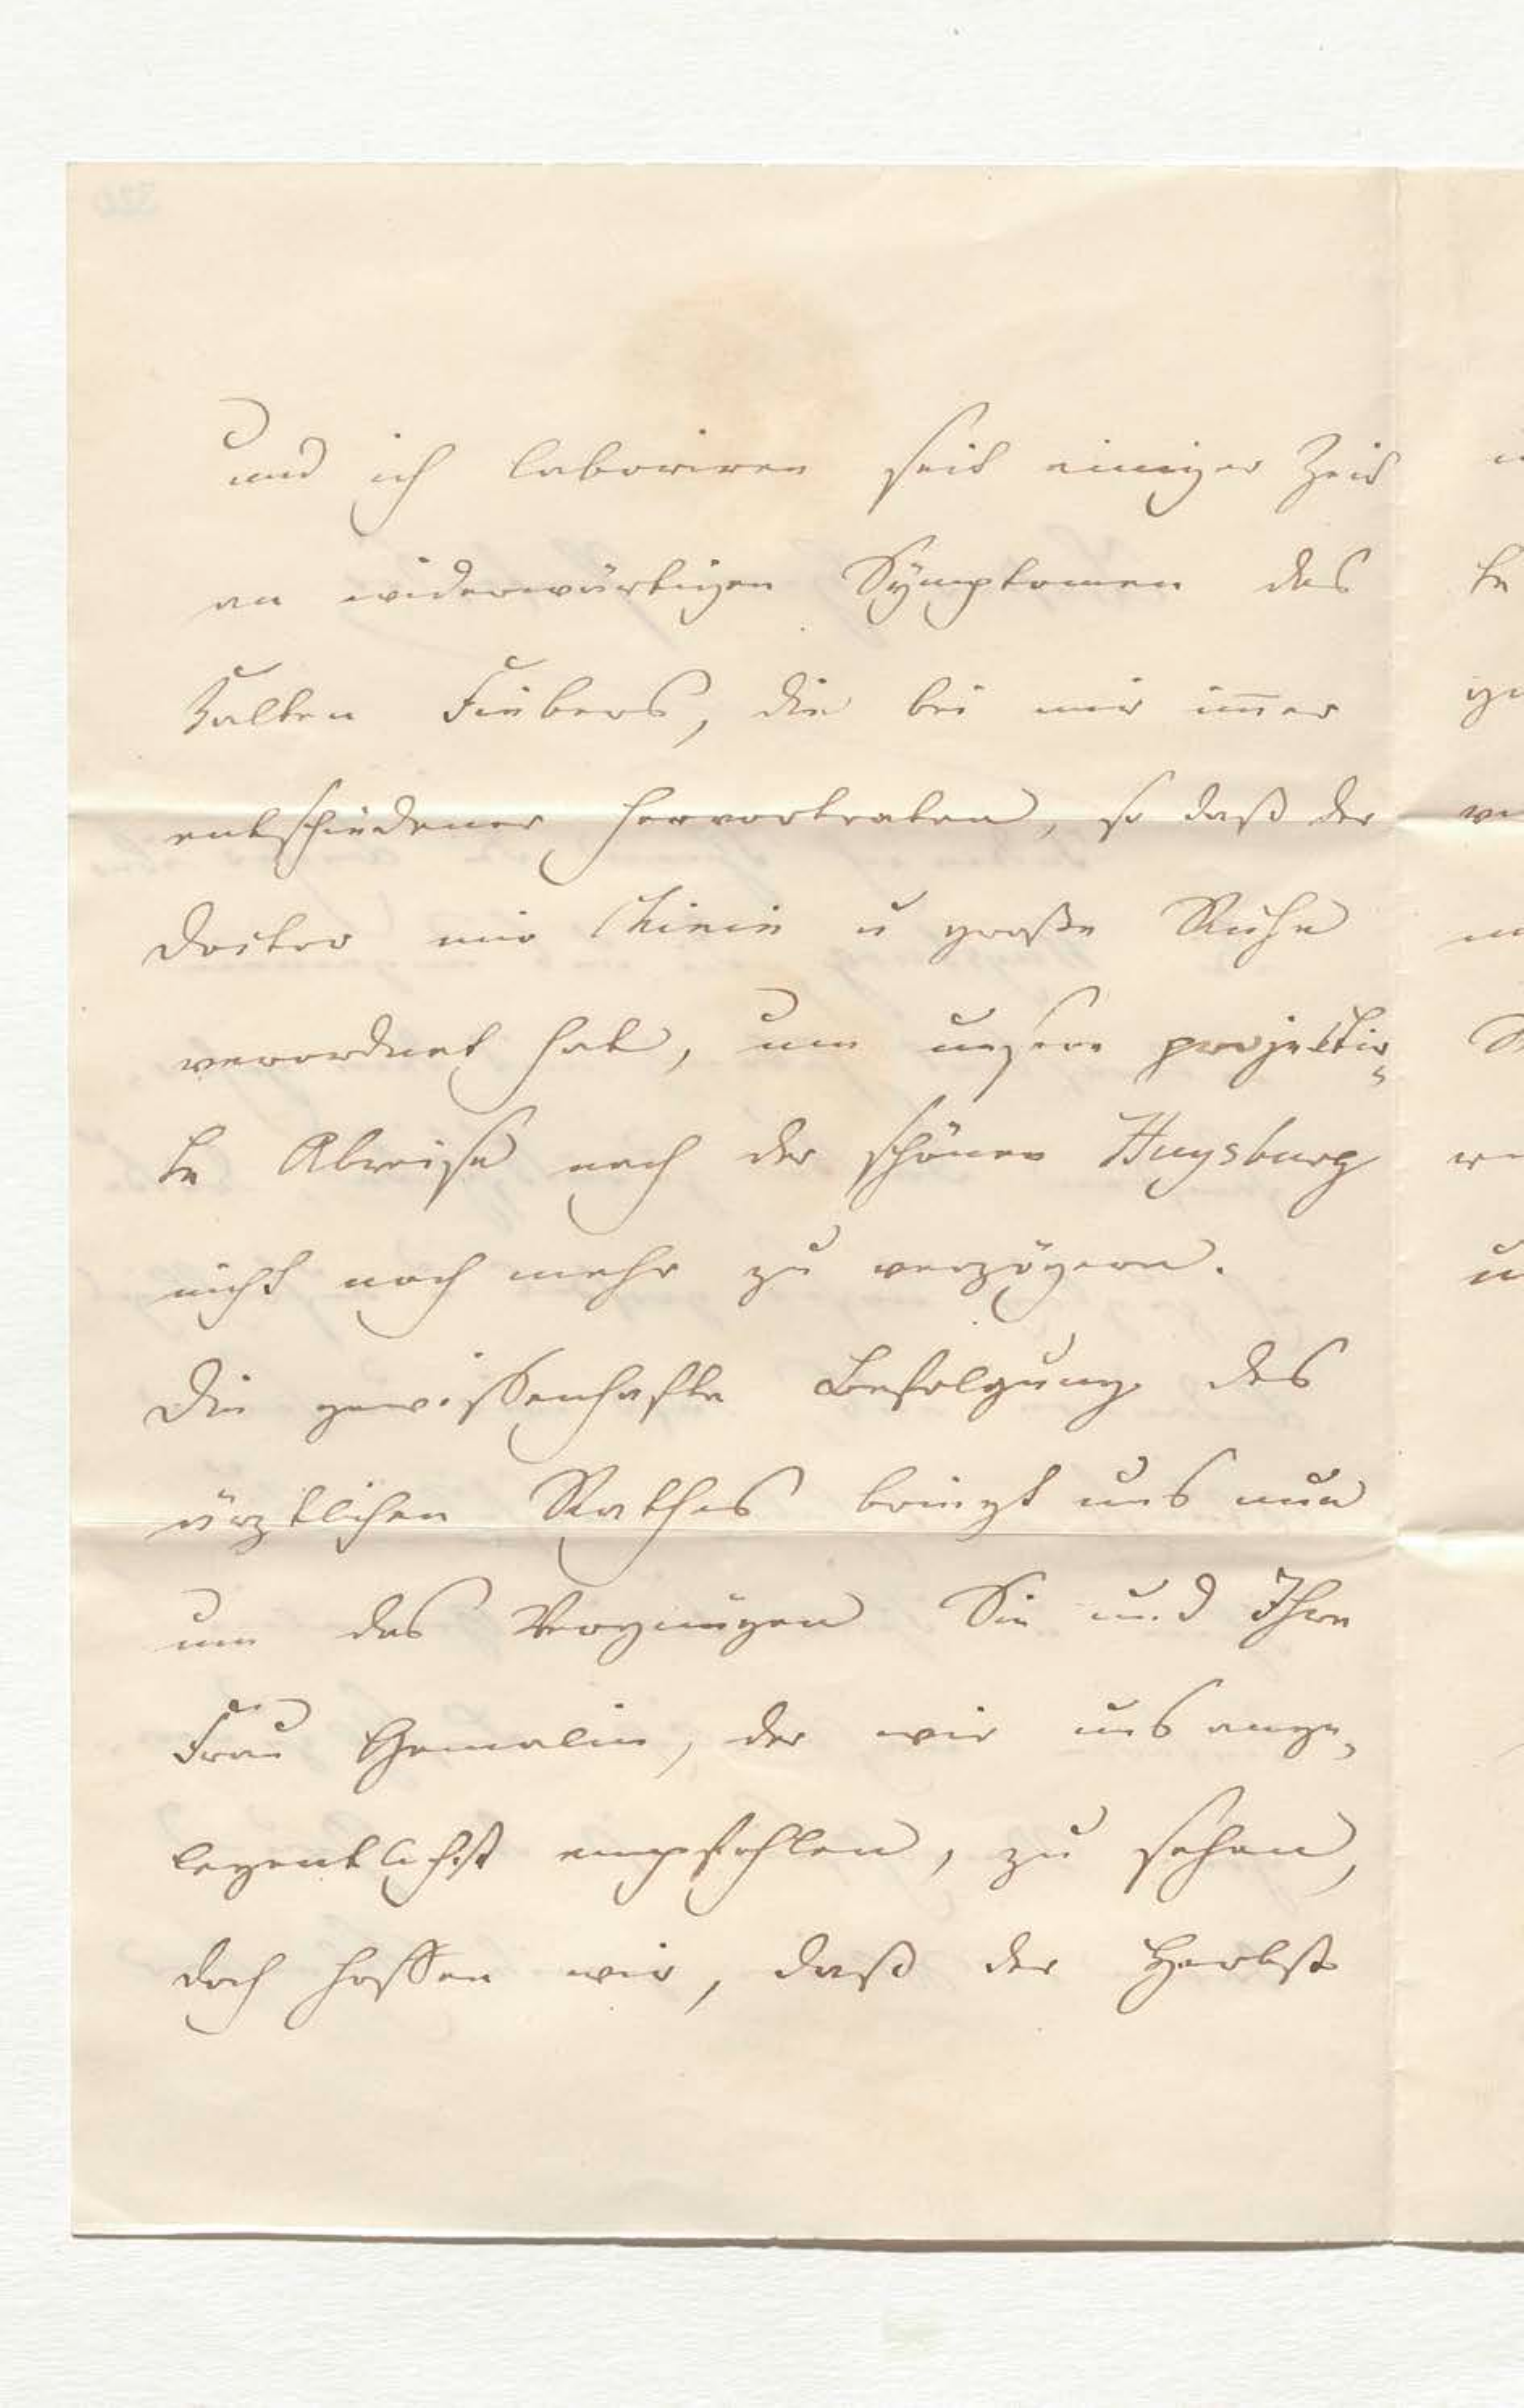 und ich laboriren seit einiger Zeit
an widerwärtigen Symptomen des
kalten Fiebers, die bei mir im̅er
entschiedener hervortraten, so daß der
Doctor mir Chinin u große Ruhe
verordnet hat, um unsere projektir⸗
te Abreise nach der schönen Huysburg
nicht noch mehr zu verzögern.
Die gewissenhafte Befolgung des
ärztlichen Rathes bringt uns nun
um das Vergnügen Sie und Ihre
Frau Gemalin, der wir uns ange⸗
legentlichst empfehlen, zu sehen,
doch hoffen wir, daß der Herbst